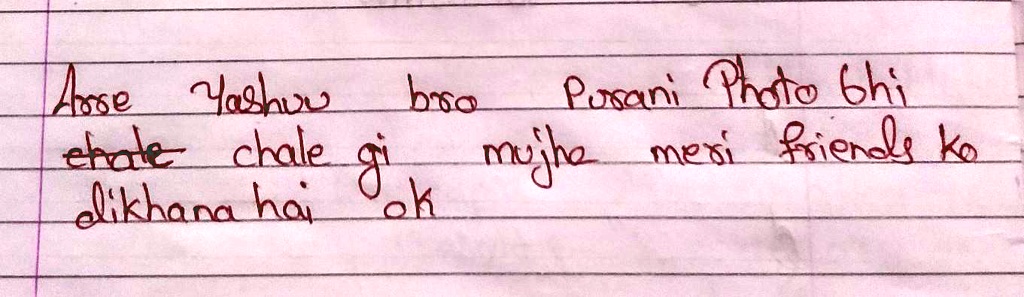 Arre Yashuu bro Purani Photo bhi
chale chale gi mujhe meri friends ko
dikhana hai ok